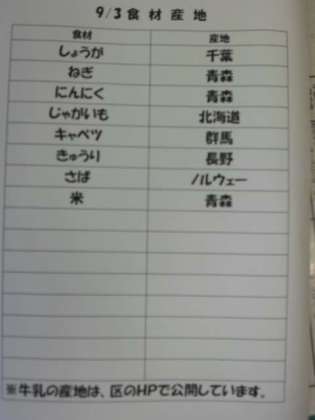 9/3食材産地
食材 産地
しょうが 千葉
ねぎ 青森
にんにく 青森
じゃがいも 北海道
キャベツ 群馬
きゅうり 長野
さば ノルウェー
米 青森
※牛乳の産地は、区のHPで公開しています。